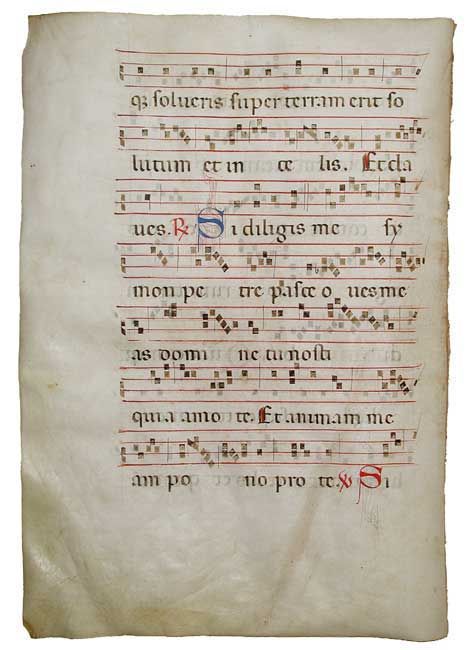 qz solueris super terram erit so
lutum et in ce lis. Et cla
ues. R Si diligis me sy
mon pe tre pasce o ues me
as domi ne tu nosti
quia amo te. Et animam me
am po no pro te. V Si